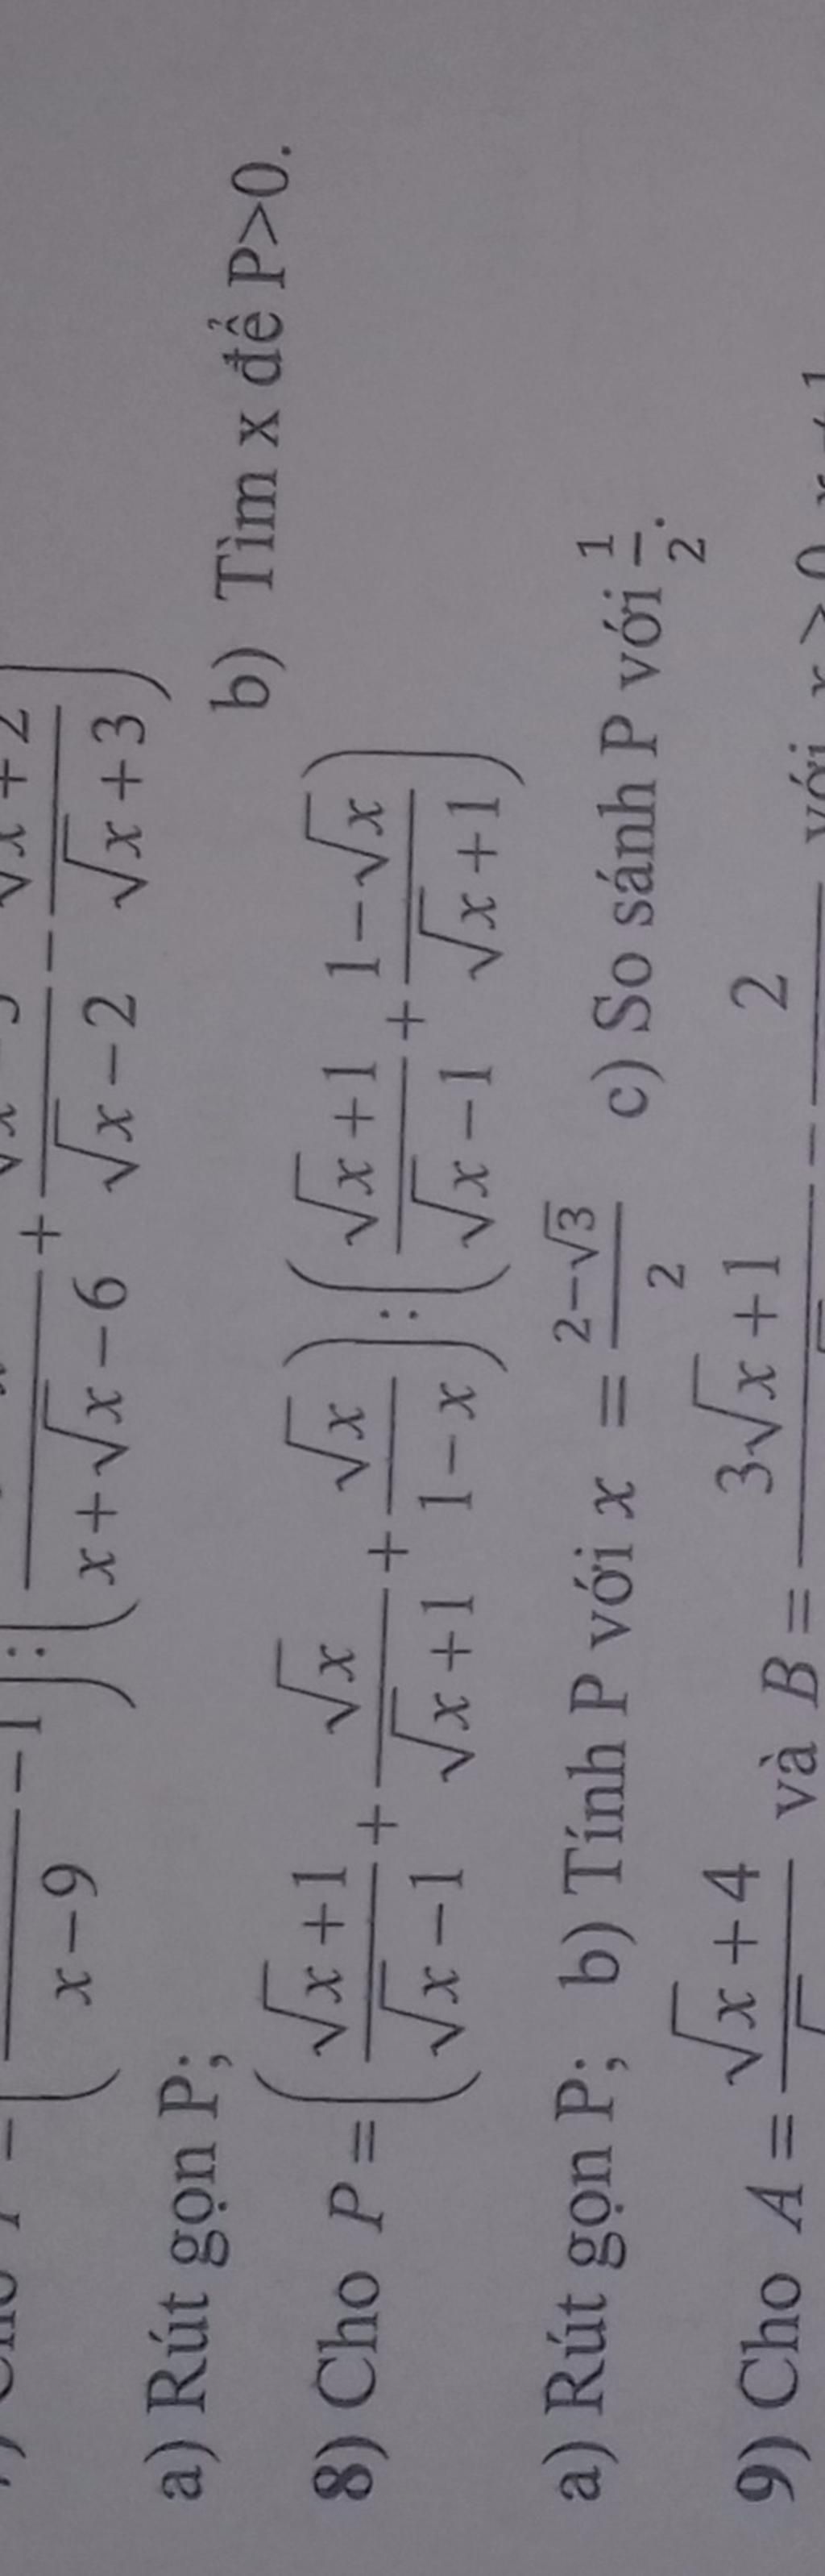 x − 9 − 1 : x + √x − 6 + √x − 2 − √x + 2 / √x + 3
a) Rút gọn P; b) Tìm x để P>0.
8) Cho P = ( (√x + 1)/(√x − 1) + √x/(√x + 1) + √x/(1 − x) ) : ( (√x + 1)/(√x − 1) + (1 − √x)/(√x + 1) )
a) Rút gọn P; b) Tính P với x = (2−√3)/2 c) So sánh P với 1/2.
9) Cho A = √x + 4 và B = 3√x + 1 − 2 với